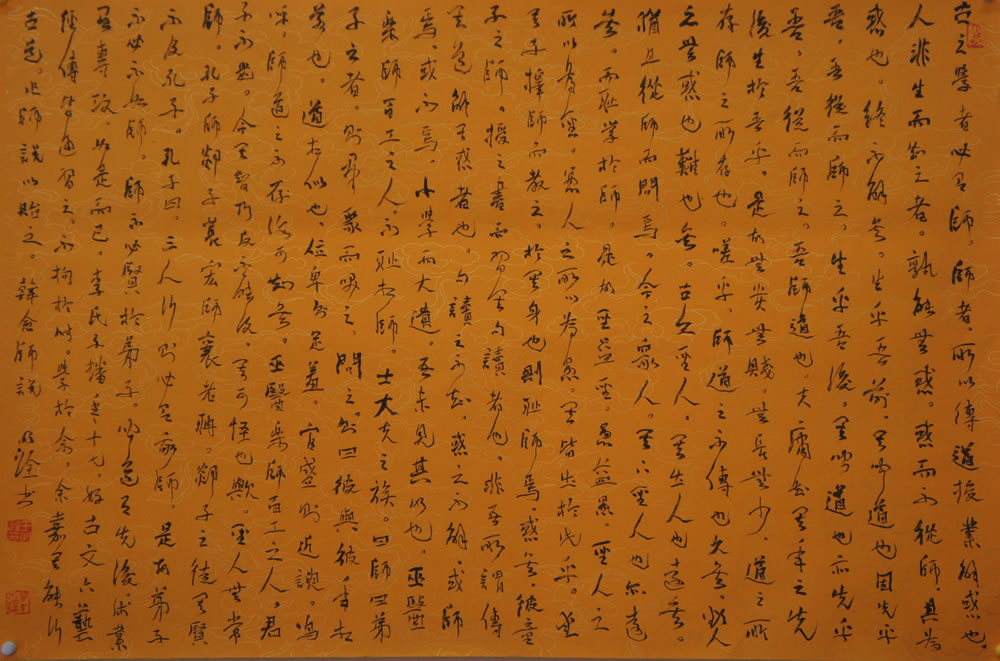 古之學者必有師。師者,所以傳道授業解惑也。
人非生而知之者。孰能無惑。惑而不從師。其為
惑也。終不解矣。生乎吾前。其聞道也固先乎
吾。吾從而師之。生乎吾後。其聞道也亦先乎
吾。吾從而師之。吾師道也夫庸知其年之先
後生於吾乎。是故無貴無賤。無長無少。道之所
存師之所存也。嗟乎。師道之不傳也久矣。欲人
之無惑也難也矣。古之聖人。其出人也遠矣。
猶且從師而問焉。今之眾人。其下聖人也亦遠
矣。而恥學於師。是故聖益聖。愚益愚。聖人之
所以為聖。愚人之所以為愚其皆出於此乎。愛
其子擇師而教之。於其身也則恥師焉。惑矣。彼童
子之師。授之書而習其句讀者也。非吾所謂傳
其道解其惑者也。句讀之不知。惑之不解。或師
焉。或不焉。小學而大遺。吾未見其明也。巫醫
樂師百工之人。不恥相師。士大夫之族。曰師曰弟
子云者。則群聚而笑之。問之。則曰彼與彼。年相
若也。道相似也。位卑則足羞。官盛則近諛。嗚
呼。師道之不存復可知矣。巫醫樂師百工之人。君
子不齒。今其智乃反不能及。其可怪也歟。聖人無常
師。孔子師郯子萇宏師襄老聃。郯子之徒其賢
不及孔子。孔子曰。三人行則必有我師。是故弟子
不必不如師。師不必賢於弟子。聞道有先後。術業
有專攻。如是而已。李氏子蟠年十七。好古文六藝
經傳皆通習之。不拘於時。學於余。余嘉其能行
古道。作師說以貽之。韓愈師說 書